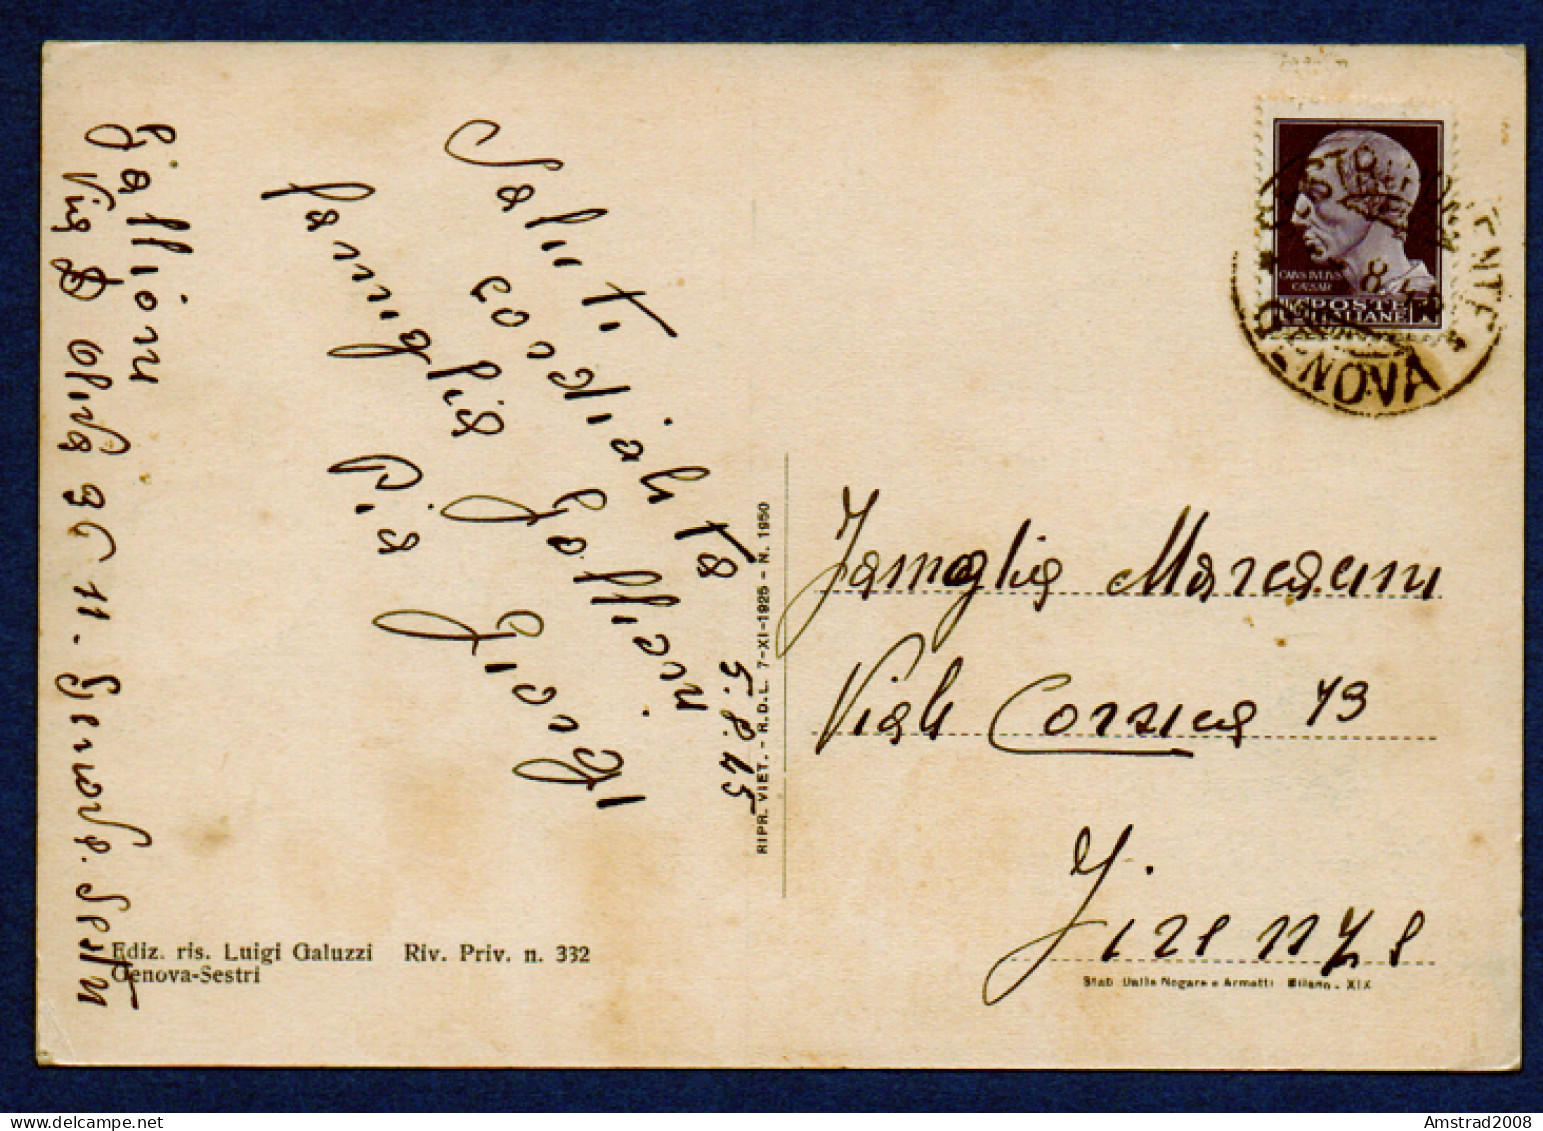 Saluti
cordialità
famiglia Gallioni
Pia Giorgi
5.8.45
Gallioni
Via D Oliva 11. Genova. Sestri
Ediz. ris. Luigi Galuzzi Riv. Priv. n. 332
Genova-Sestri
RIPR. VIET. - R.D.L. 7-XI-1925 - N. 1950
CAIVS IVLIVS
CAESAR
POSTE
ITALIANE
SESTRI PONENTE
GENOVA
Famiglia Marcacini
Viale Corsica 73
Firenze
Stab Dalle Nogare e Armetti Milano - XIX
www.delcampe.net
Amstrad2008